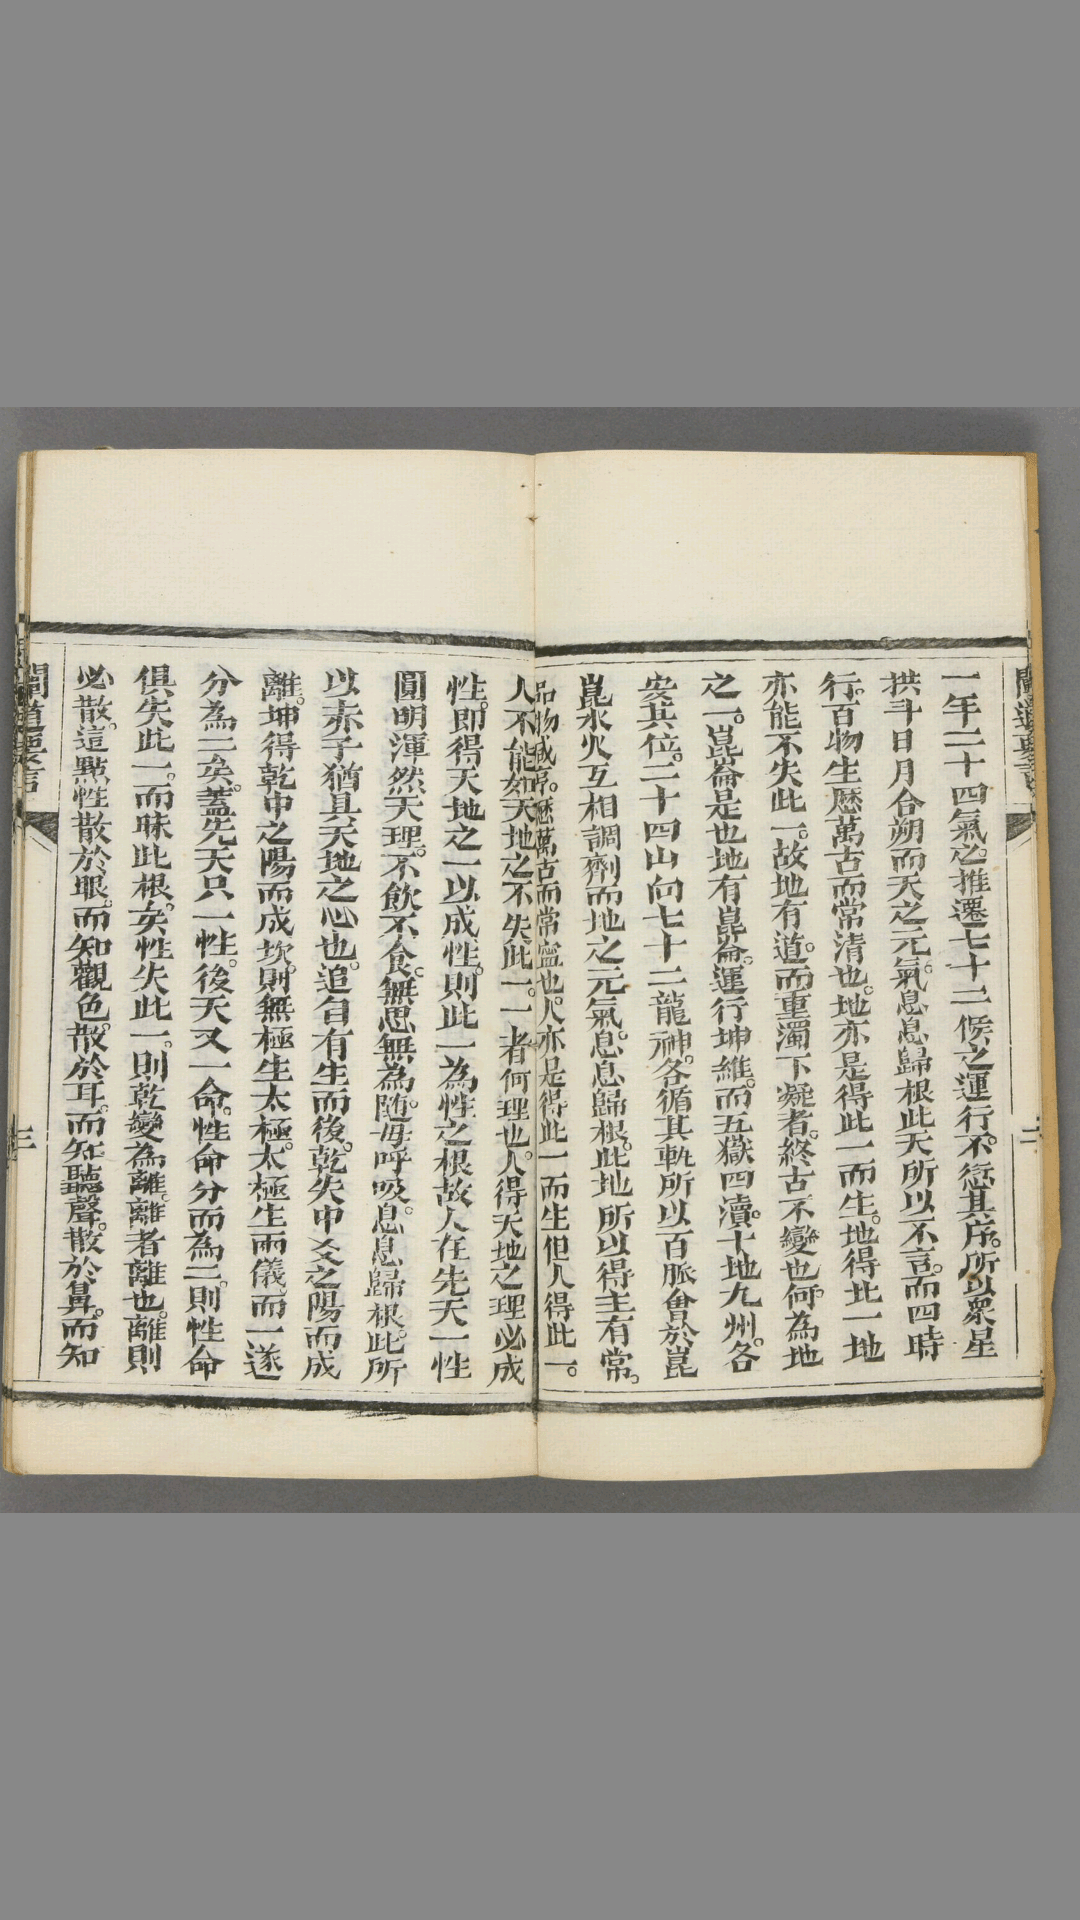 一年二十四氣之推遷七十二候之運行。不愆其序。所以眾星
拱斗日月合朔而天之元氣。息息歸根此天所以不言。而四時
行。百物生歷萬古而常清也。地亦是得此一而生。地得此一地
亦能不失此一。故地有道。而重濁下凝者。終古不變也。何為地
之一。崑崙是也地有崑崙。運行坤維。而五嶽四瀆。十地九州。各
安其位。二十四山向七十二龍神。各循其軌所以百脈會於崑
崑水火互相調劑而地之元氣。息息歸根。此地所以得主有常。
品物咸亨。歷萬古而常寧也。人亦是得此一而生但人得此一。
人不能如天地之不失此一。一者何理也。人得天地之理必成
性。即得天地之一以成性。則此一為性之根故人在先天一性
圓明渾然天理。不飲不食。無思無為。隨母呼吸。息息歸根。此所
以赤子猶具天地之心也。追自有生而後。乾失中爻之陽而成
離。坤得乾中之陽而成坎。則無極生太極。太極生兩儀。而一遂
分為二矣。蓋先天只一性。後天又一命。性命分而為二。則性命
俱失此一。而昧此根。矣性失此一。則乾變為離。離者離也。離則
必散。這點性散於眼。而知觀色。散於耳。而知聽聲。散於鼻。而知
闡道要言
三